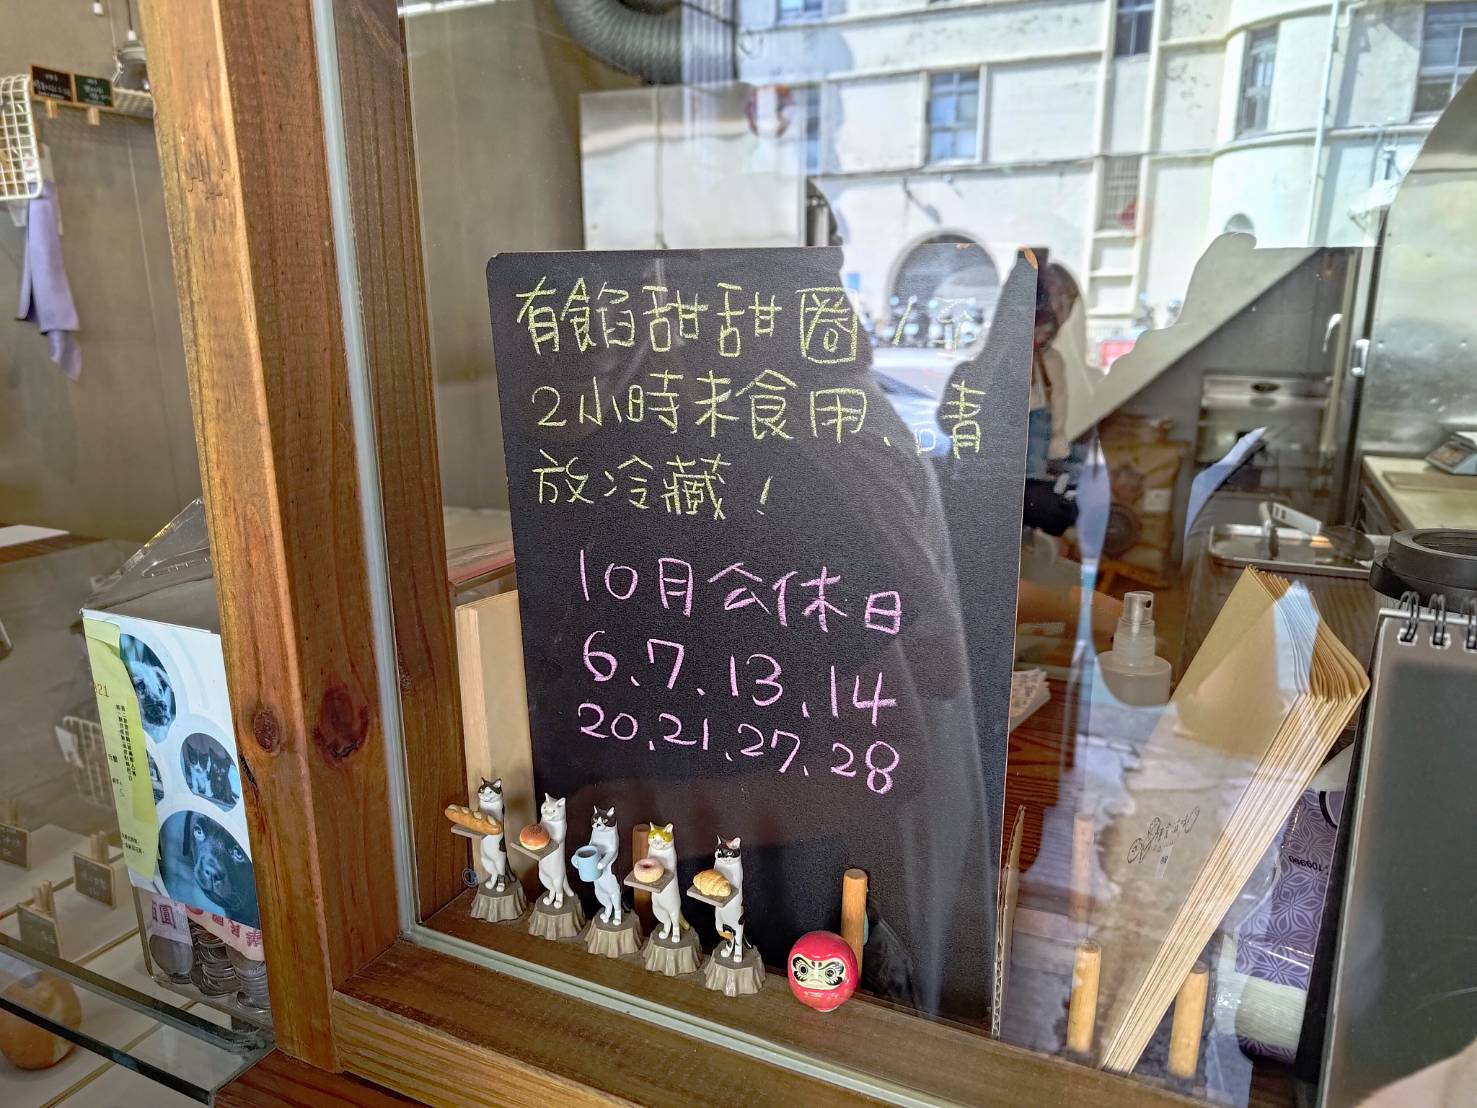 有餡甜甜圈
2小時未食用、請
放冷藏!
10月公休日
6、7、13、14
20、21、27、28